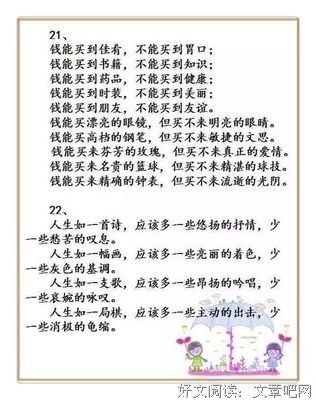 21、
钱能买到佳肴，不能买到胃口；
钱能买到书籍，不能买到知识；
钱能买到药品，不能买到健康；
钱能买到时装，不能买到美丽；
钱能买到朋友，不能买到友谊。
钱能买漂亮的眼镜，但买不来明亮的眼睛。
钱能买高档的钢笔，但买不来敏捷的文思。
钱能买来芬芳的玫瑰，但买不来真正的爱情。
钱能买来名贵的篮球，但买不来精湛的球技。
钱能买来精确的钟表，但买不来流逝的光阴。
22、
人生如一首诗，应该多一些悠扬的抒情，少
一些愁苦的叹息。
人生如一幅画，应该多一些亮丽的着色，少
一些灰色的基调。
人生如一支歌，应该多一些昂扬的吟唱，少
一些哀婉的咏叹。
人生如一局棋，应该多一些主动的出击，少
一些消极的龟缩。
好文阅读：文章吧网